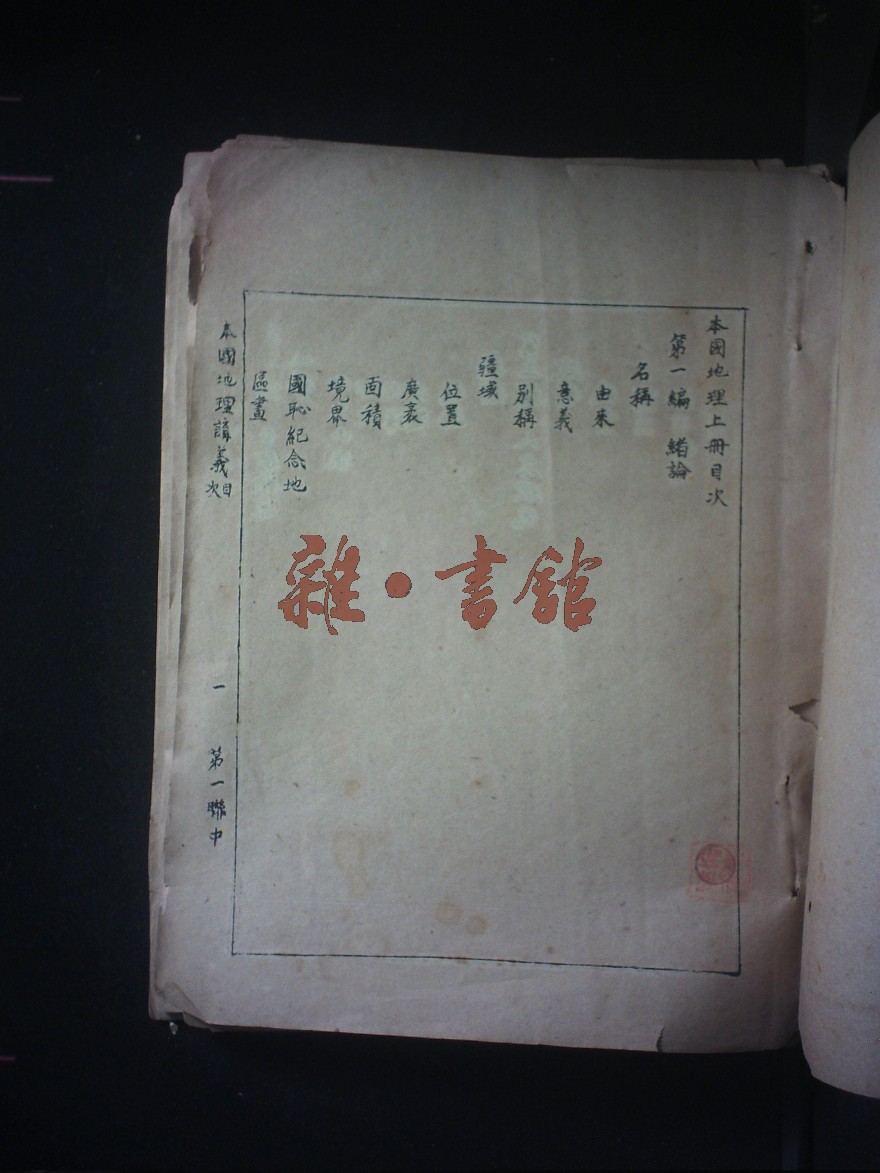 本國地理上冊目次
第一編 緒論
名稱
由來
意義
別稱
疆域
位置
廣袤
面積
境界
國恥紀念地
區畫
本國地理講義目次
一
第一聯中
雜·書館